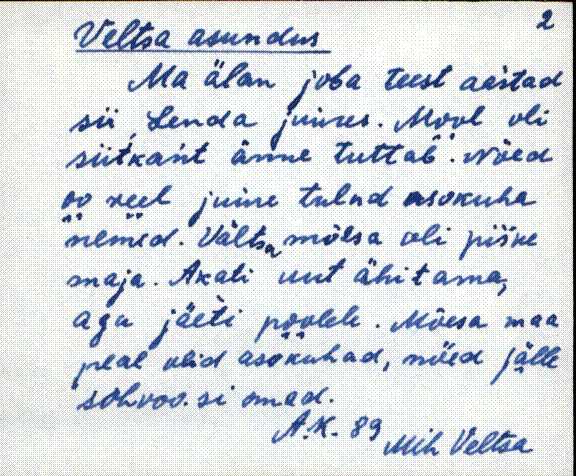 2
Veltsa asundus
Ma älan joba teest aastad
sii, Lenda juures. Mool oli
siitkañt änne tuttab. Nöed
oo veel juine tulnd asokuha
nemed. Vältsa mõesa oli piśike
maja. Akati uut ähitama,
aga jäeti poolele. Mõesa maa
peal olid asokuhad, nöed jälle
sohvoosi omad.
A.K. 89
Mih Veltsa